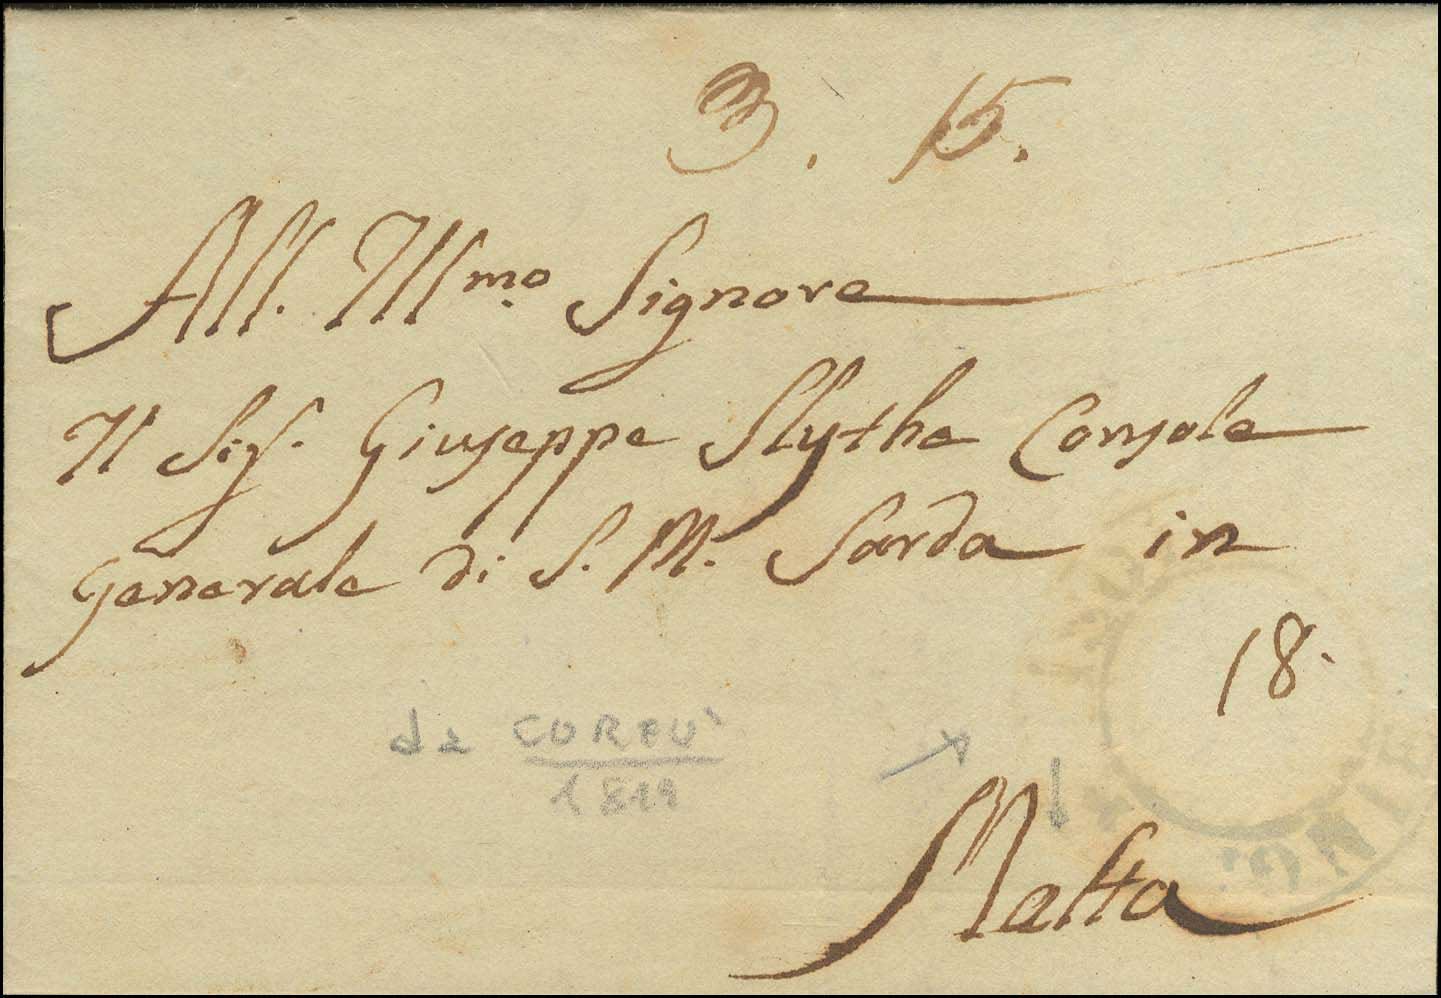 3. 15.
All. Illmo. Signore
Il Sigr. Giuseppe Slythe Console
Generale di S. M. Sarda in
18.
da CORFU'
1819
Malta